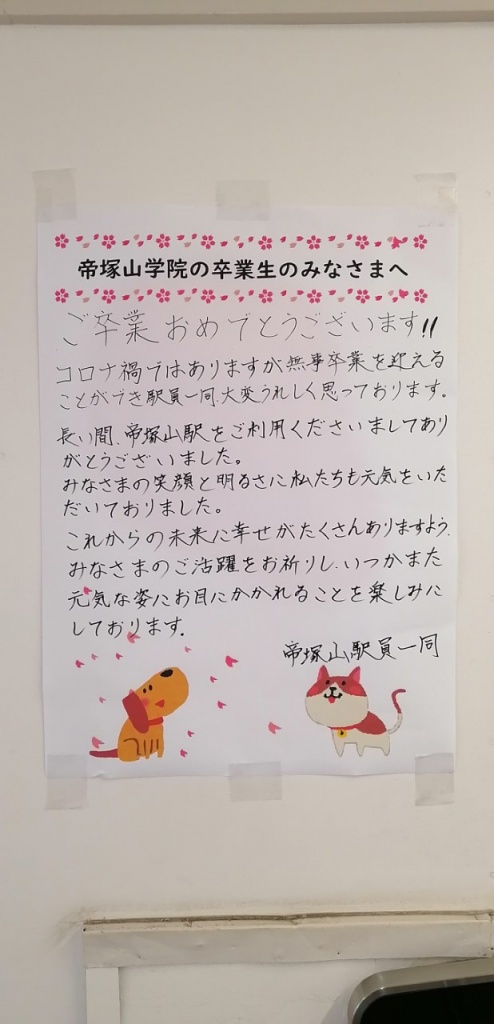 帝塚山学院の卒業生のみなさまへ
ご卒業おめでとうございます!!
コロナ禍ではありますが無事卒業を迎える
ことができ駅員一同、大変うれしく思っております。
長い間、帝塚山駅をご利用くださいましてあり
がとうございました。
みなさまの笑顔と明るさに私たちも元気をいた
だいておりました。
これからの未来に幸せがたくさんありますよう、
みなさまのご活躍をお祈りし、いつかまた
元気な姿にお目にかかれることを楽しみに
しております。
帝塚山駅員一同